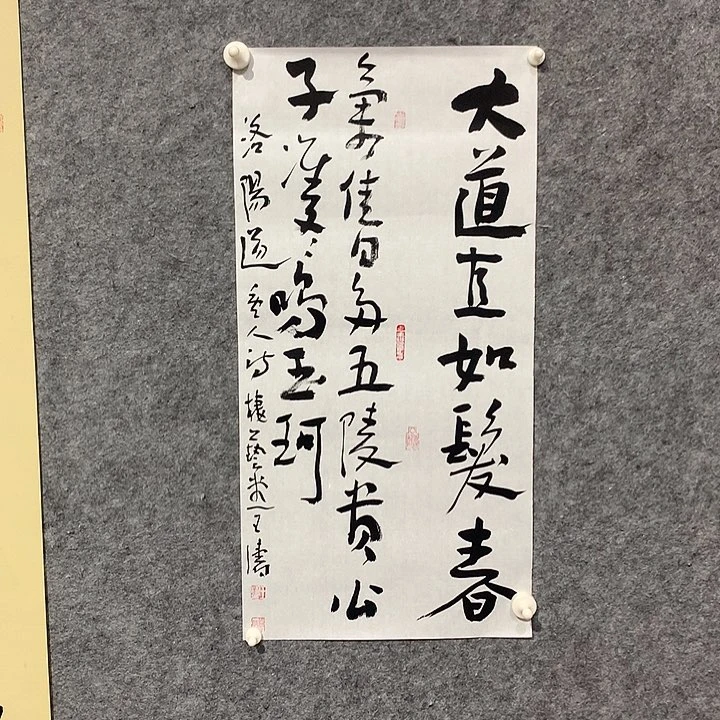 大道直如髮春
氣佳日多五陵貴公
子雙〻鳴玉珂
洛陽道 人詩 藝 王濤